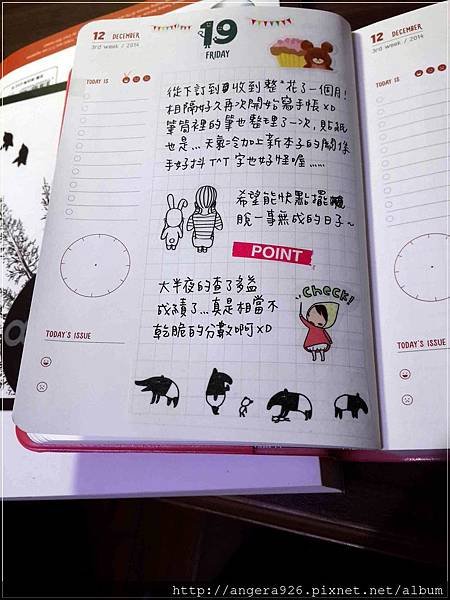 12 DECEMBER
3rd week / 2014
19
FRIDAY
TODAY IS
從下訂到收到整*花了一個月!
相隔好久再次開始寫手帳xD
筆筒裡的筆也整理了一次,貼紙
也是...天氣冷加上新本子的關係
手好抖T^T 字也好怪喔......
希望能快點擺
脫一事無成的日子~
POINT
大半夜的查了多益
成績了...真是相當不
乾脆的分數啊xD
Check!
TODAY'S ISSUE
12 DECEMBER
3rd week / 2014
TODAY IS
TODAY'S ISSUE
http://angera926.pixnet.net/album